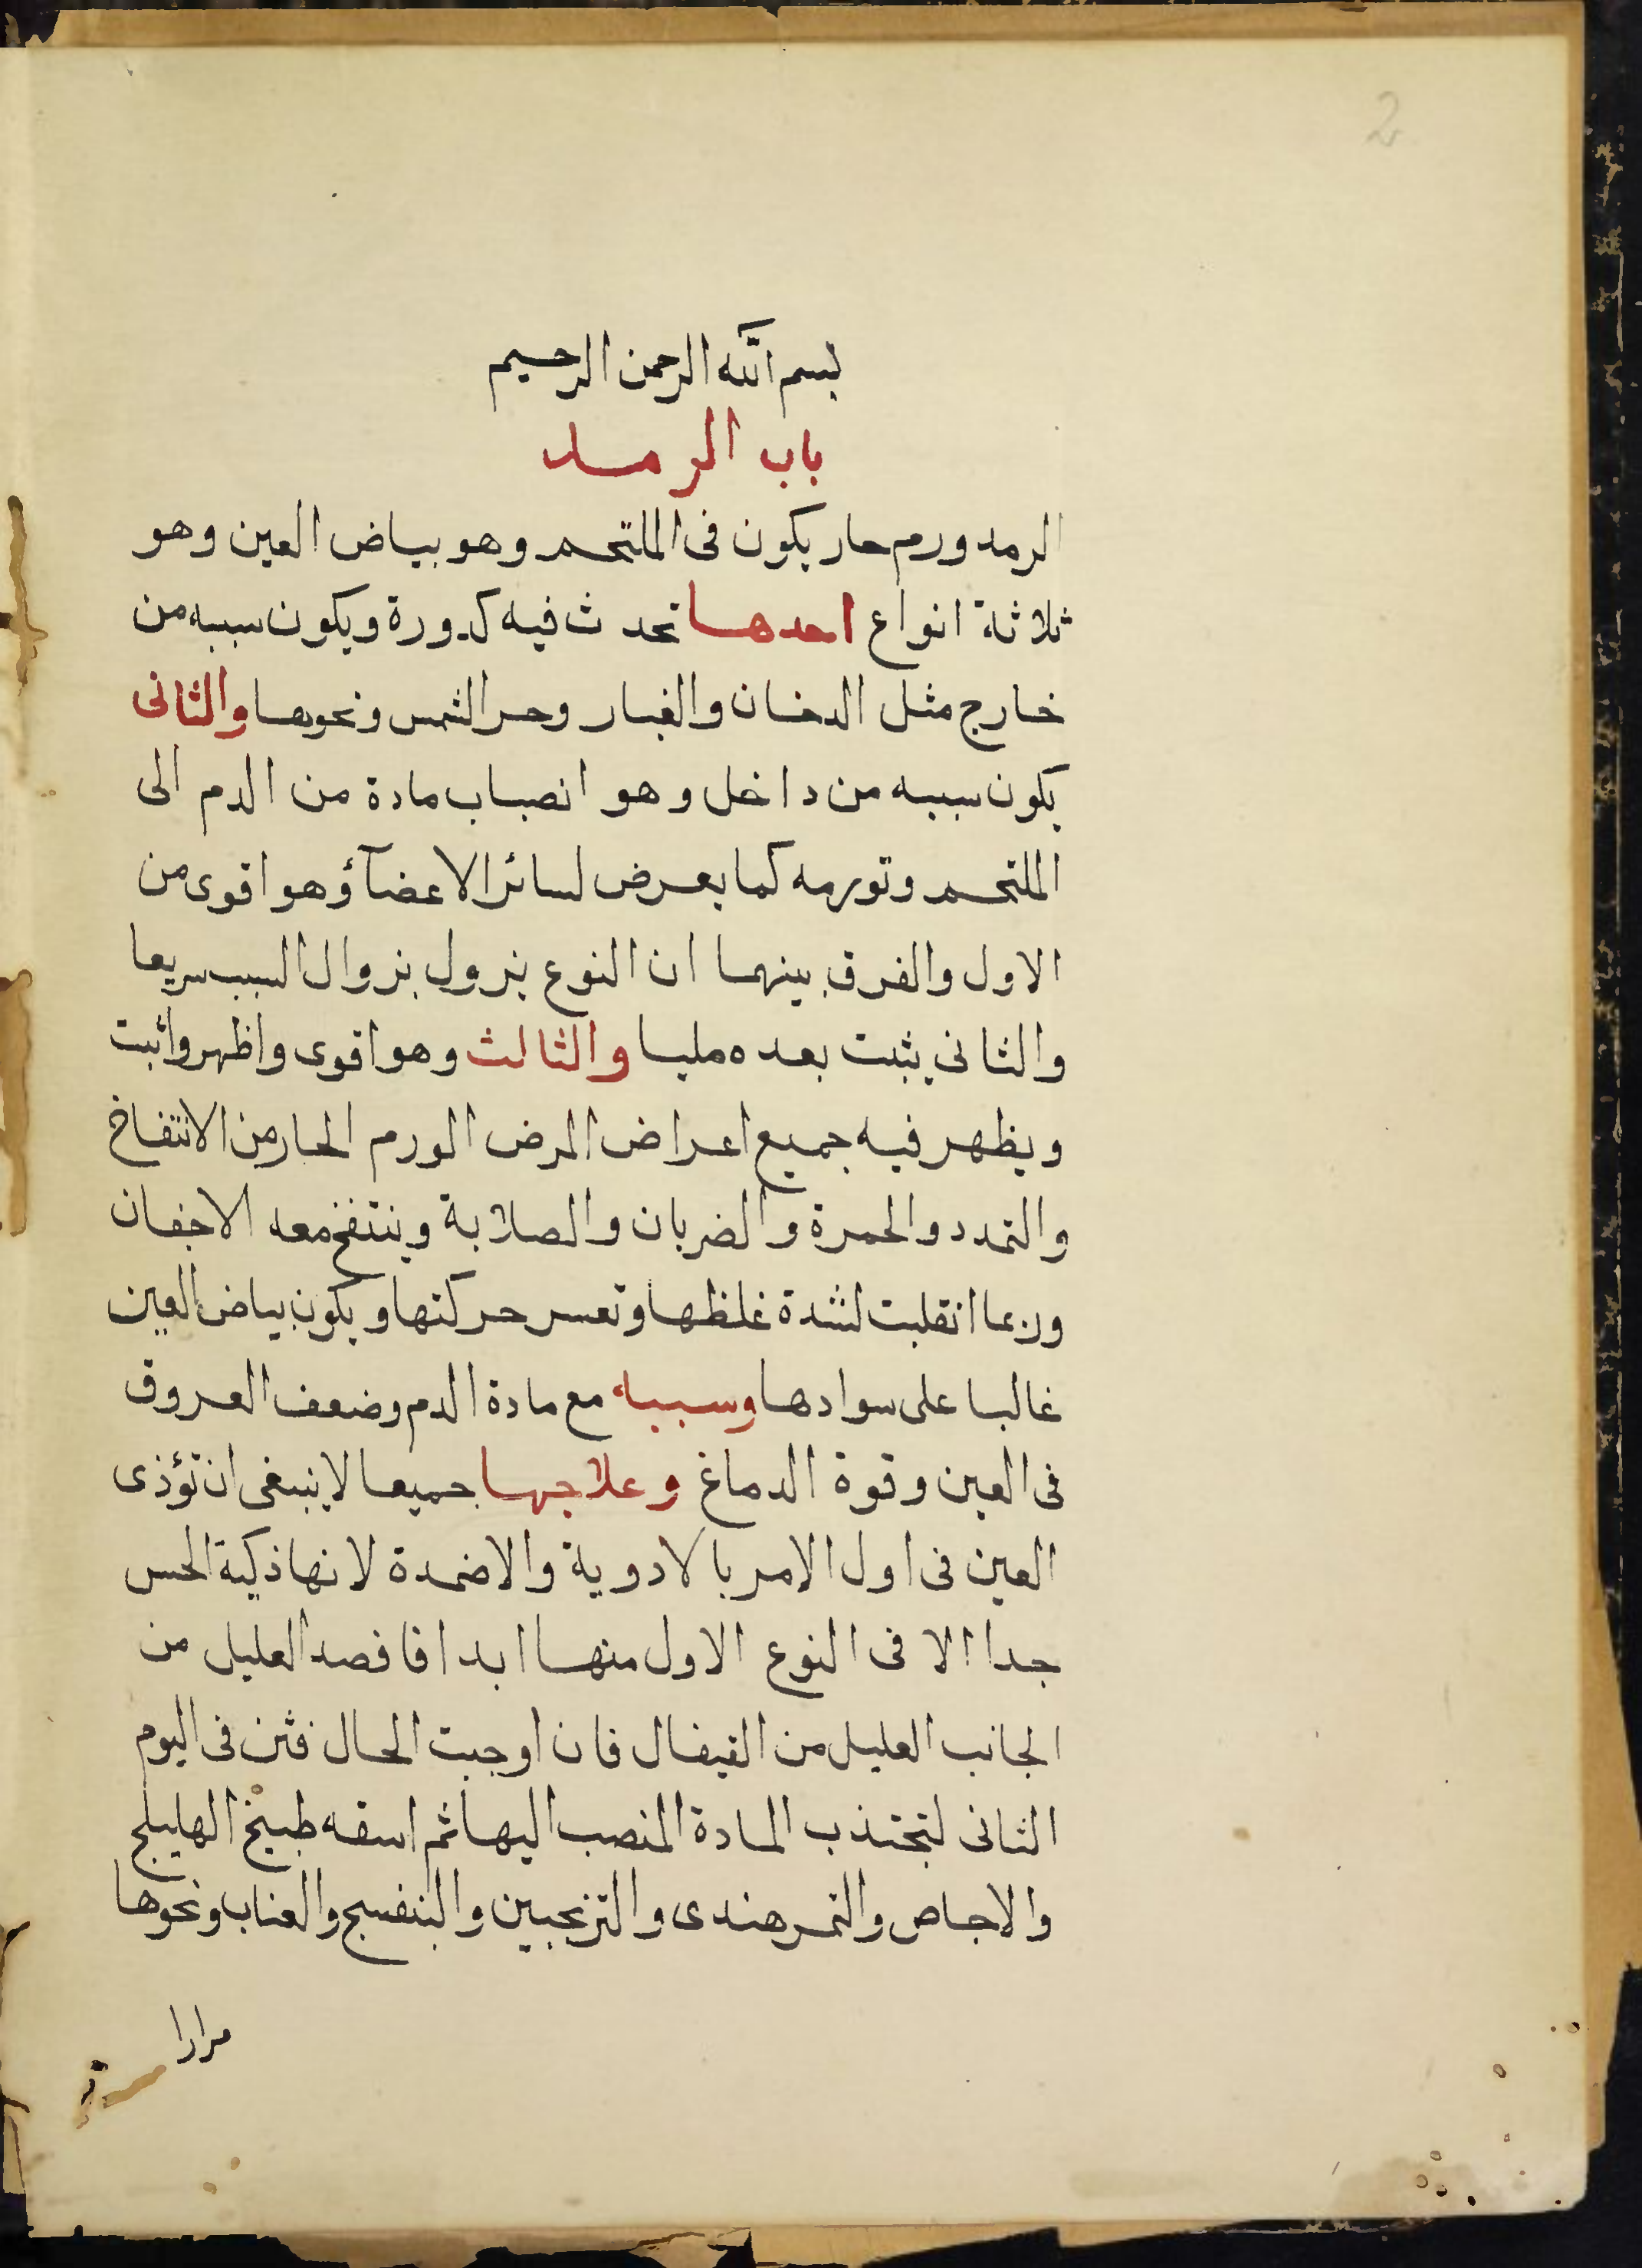 2
بسم الله الرحمن الرحيم
باب الرمد
الرمد ورم حار يكون فى الملتحم وهو بياض العين وهو
ثلاثة انواع احدها تحدث فيه كدورة ويكون سببه من
خارج مثل الدخان والغبار وحر الشمس ونحوها والثانى
يكون سببه من داخل وهو انصباب مادة من الدم الى
الملتحم وتورمه كما يعرض لسائر الاعضآؤ وهو اقوى من
الاول والفرق بينهما ان النوع يزول بزوال السبب سريعا
والثانى يثبت بعده مليا والثالث وهو اقوى واظهر واثبت
ويظهر فيه جميع اعراض المرض الورم الحار من الانتفاخ
والتمدد والحمرة والضربان والصلابة وينتفخ معه الاجفان
وربما انقلبت لشدة غلظها وتعسر حركتها ويكون بياض العين
غالبا على سوادها وسببه مع مادة الدم وضعف العروق
فى العين وقوة الدماغ وعلاجها جميعا لا ينبغى ان تؤذى
العين فى اول الامر بالادوية والاضمدة لانها ذكية الحس
جدا الا فى النوع الاول منها ابدا فافصد العليل من
الجانب العليل من القيفال فان اوجبت الحال فثن فى اليوم
الثانى لتجتذب المادة المنصب اليها ثم اسقه طبيخ الهليلج
والاجاص والتمرهندى والترنجبين والبنفسج والعناب ونحوها
مرارا